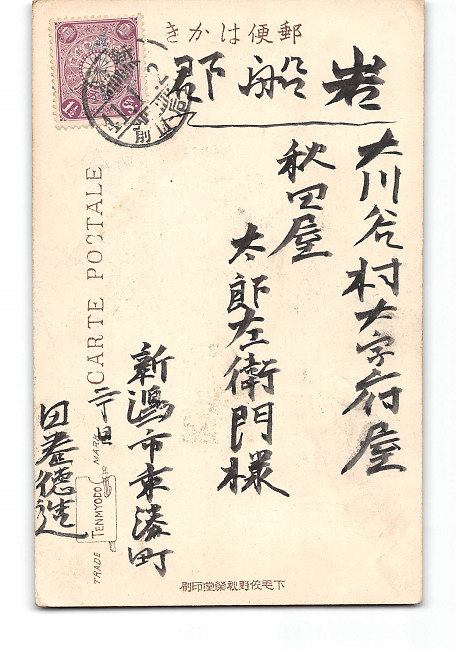 郵便はかき
岩船郡
大川谷村大字府屋
秋田屋
太郎左衛門様
新潟市東湊町
二丁目
田巻徳造
CARTE POSTALE
TRADE MARK
TENMYODO
下毛佐野秋榮堂印刷